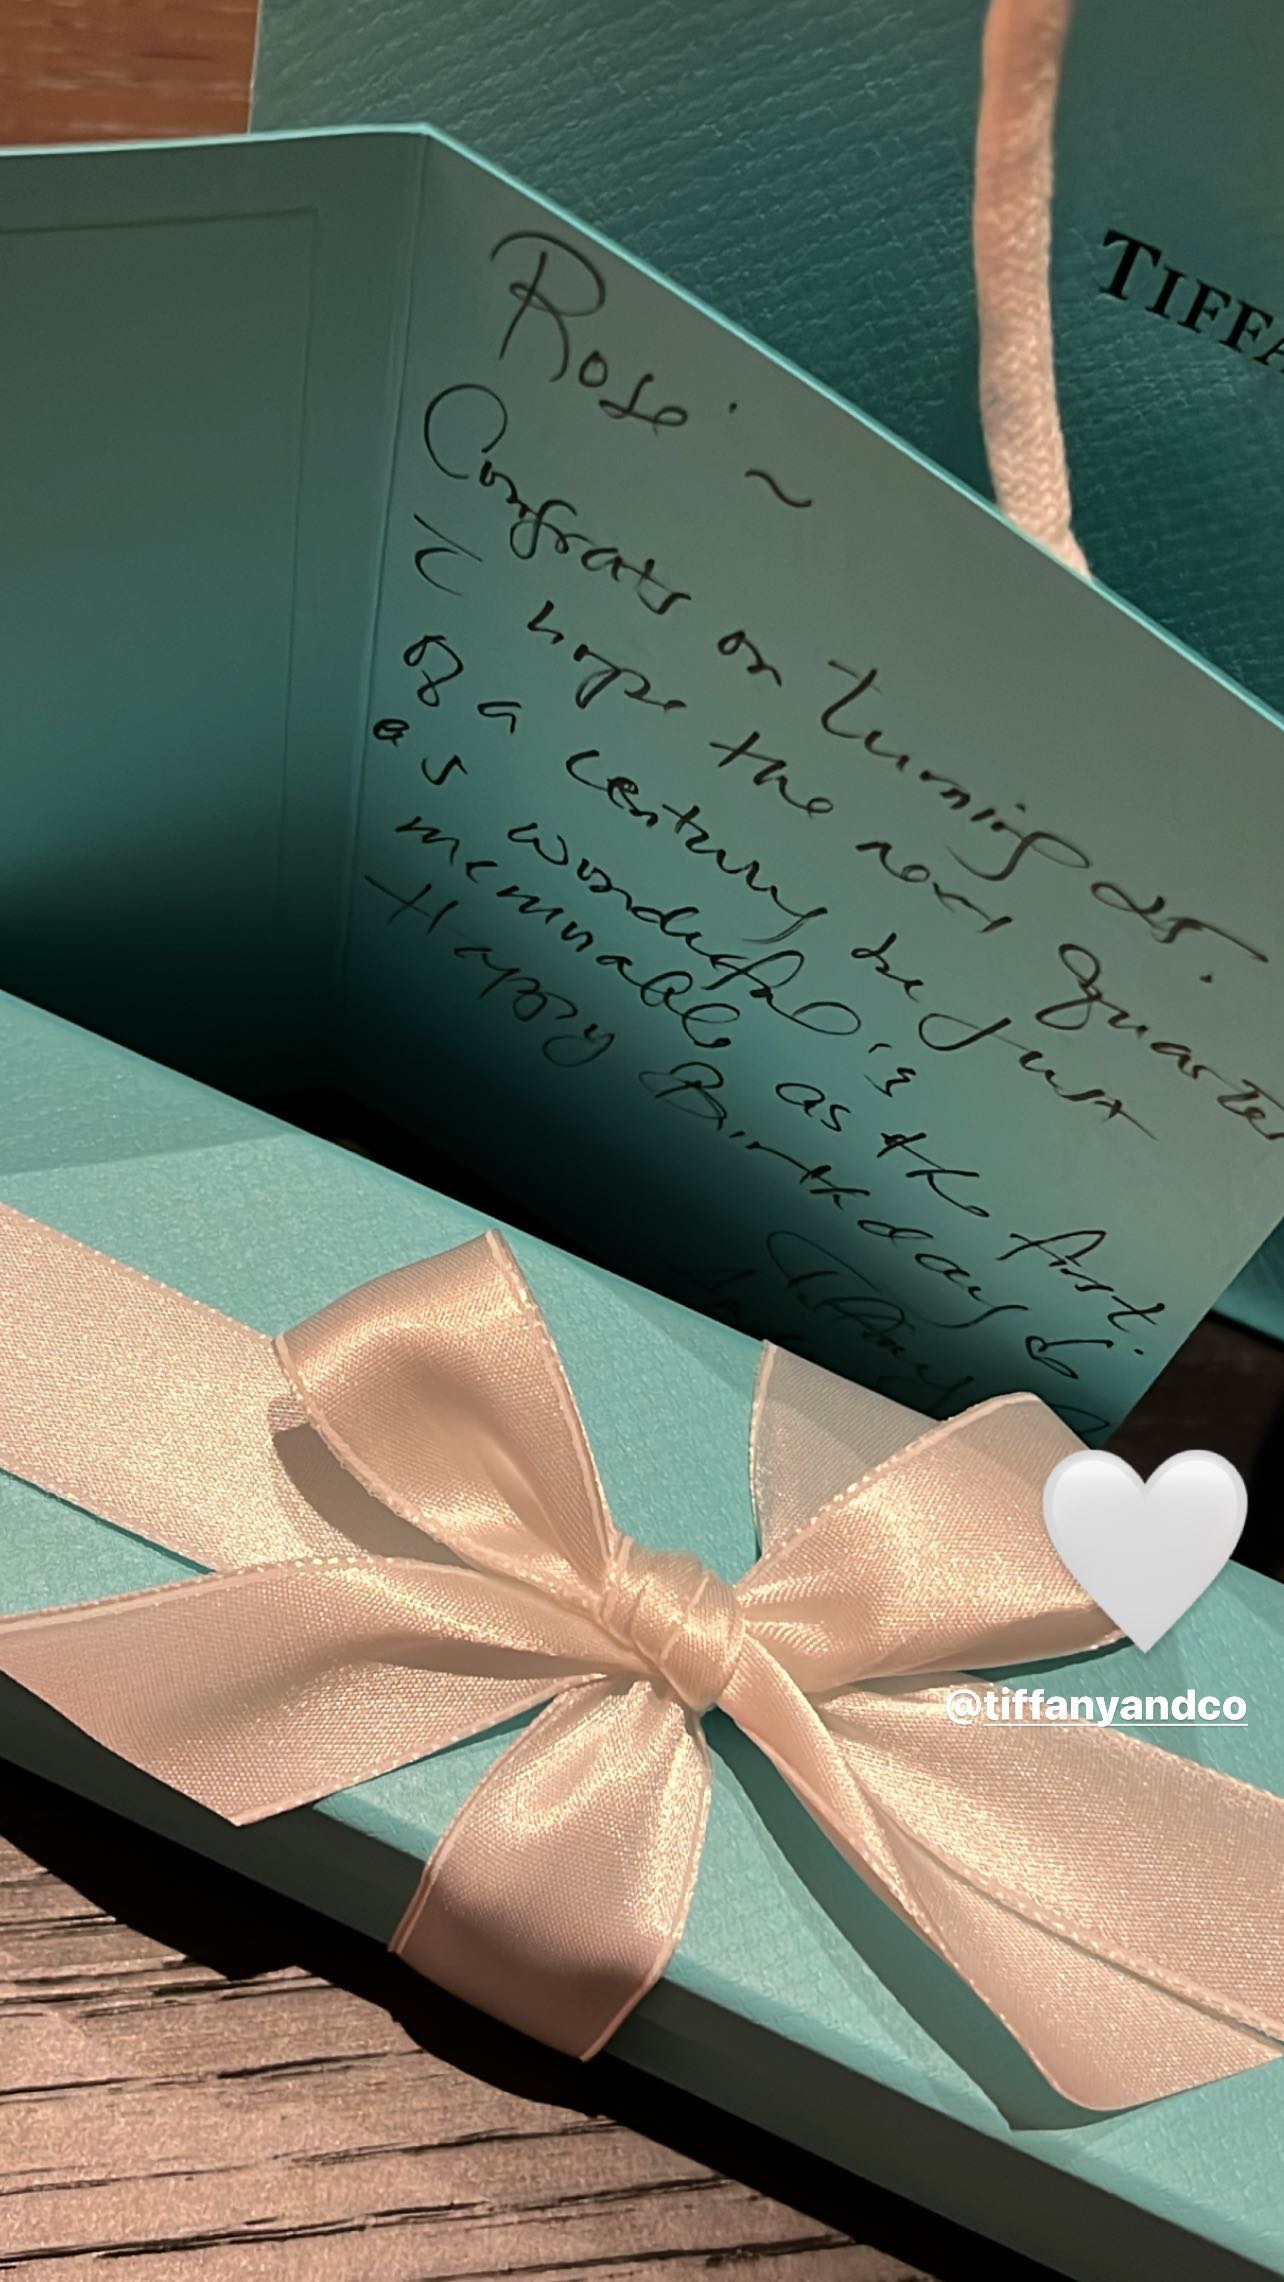 TIFFA
Rosé ~
Congrats on turning 25.
I hope the next quarter
of a century be just
as wonderful is
memorable as the first.
Happy Birthday to
Tiffany
@tiffanyandco